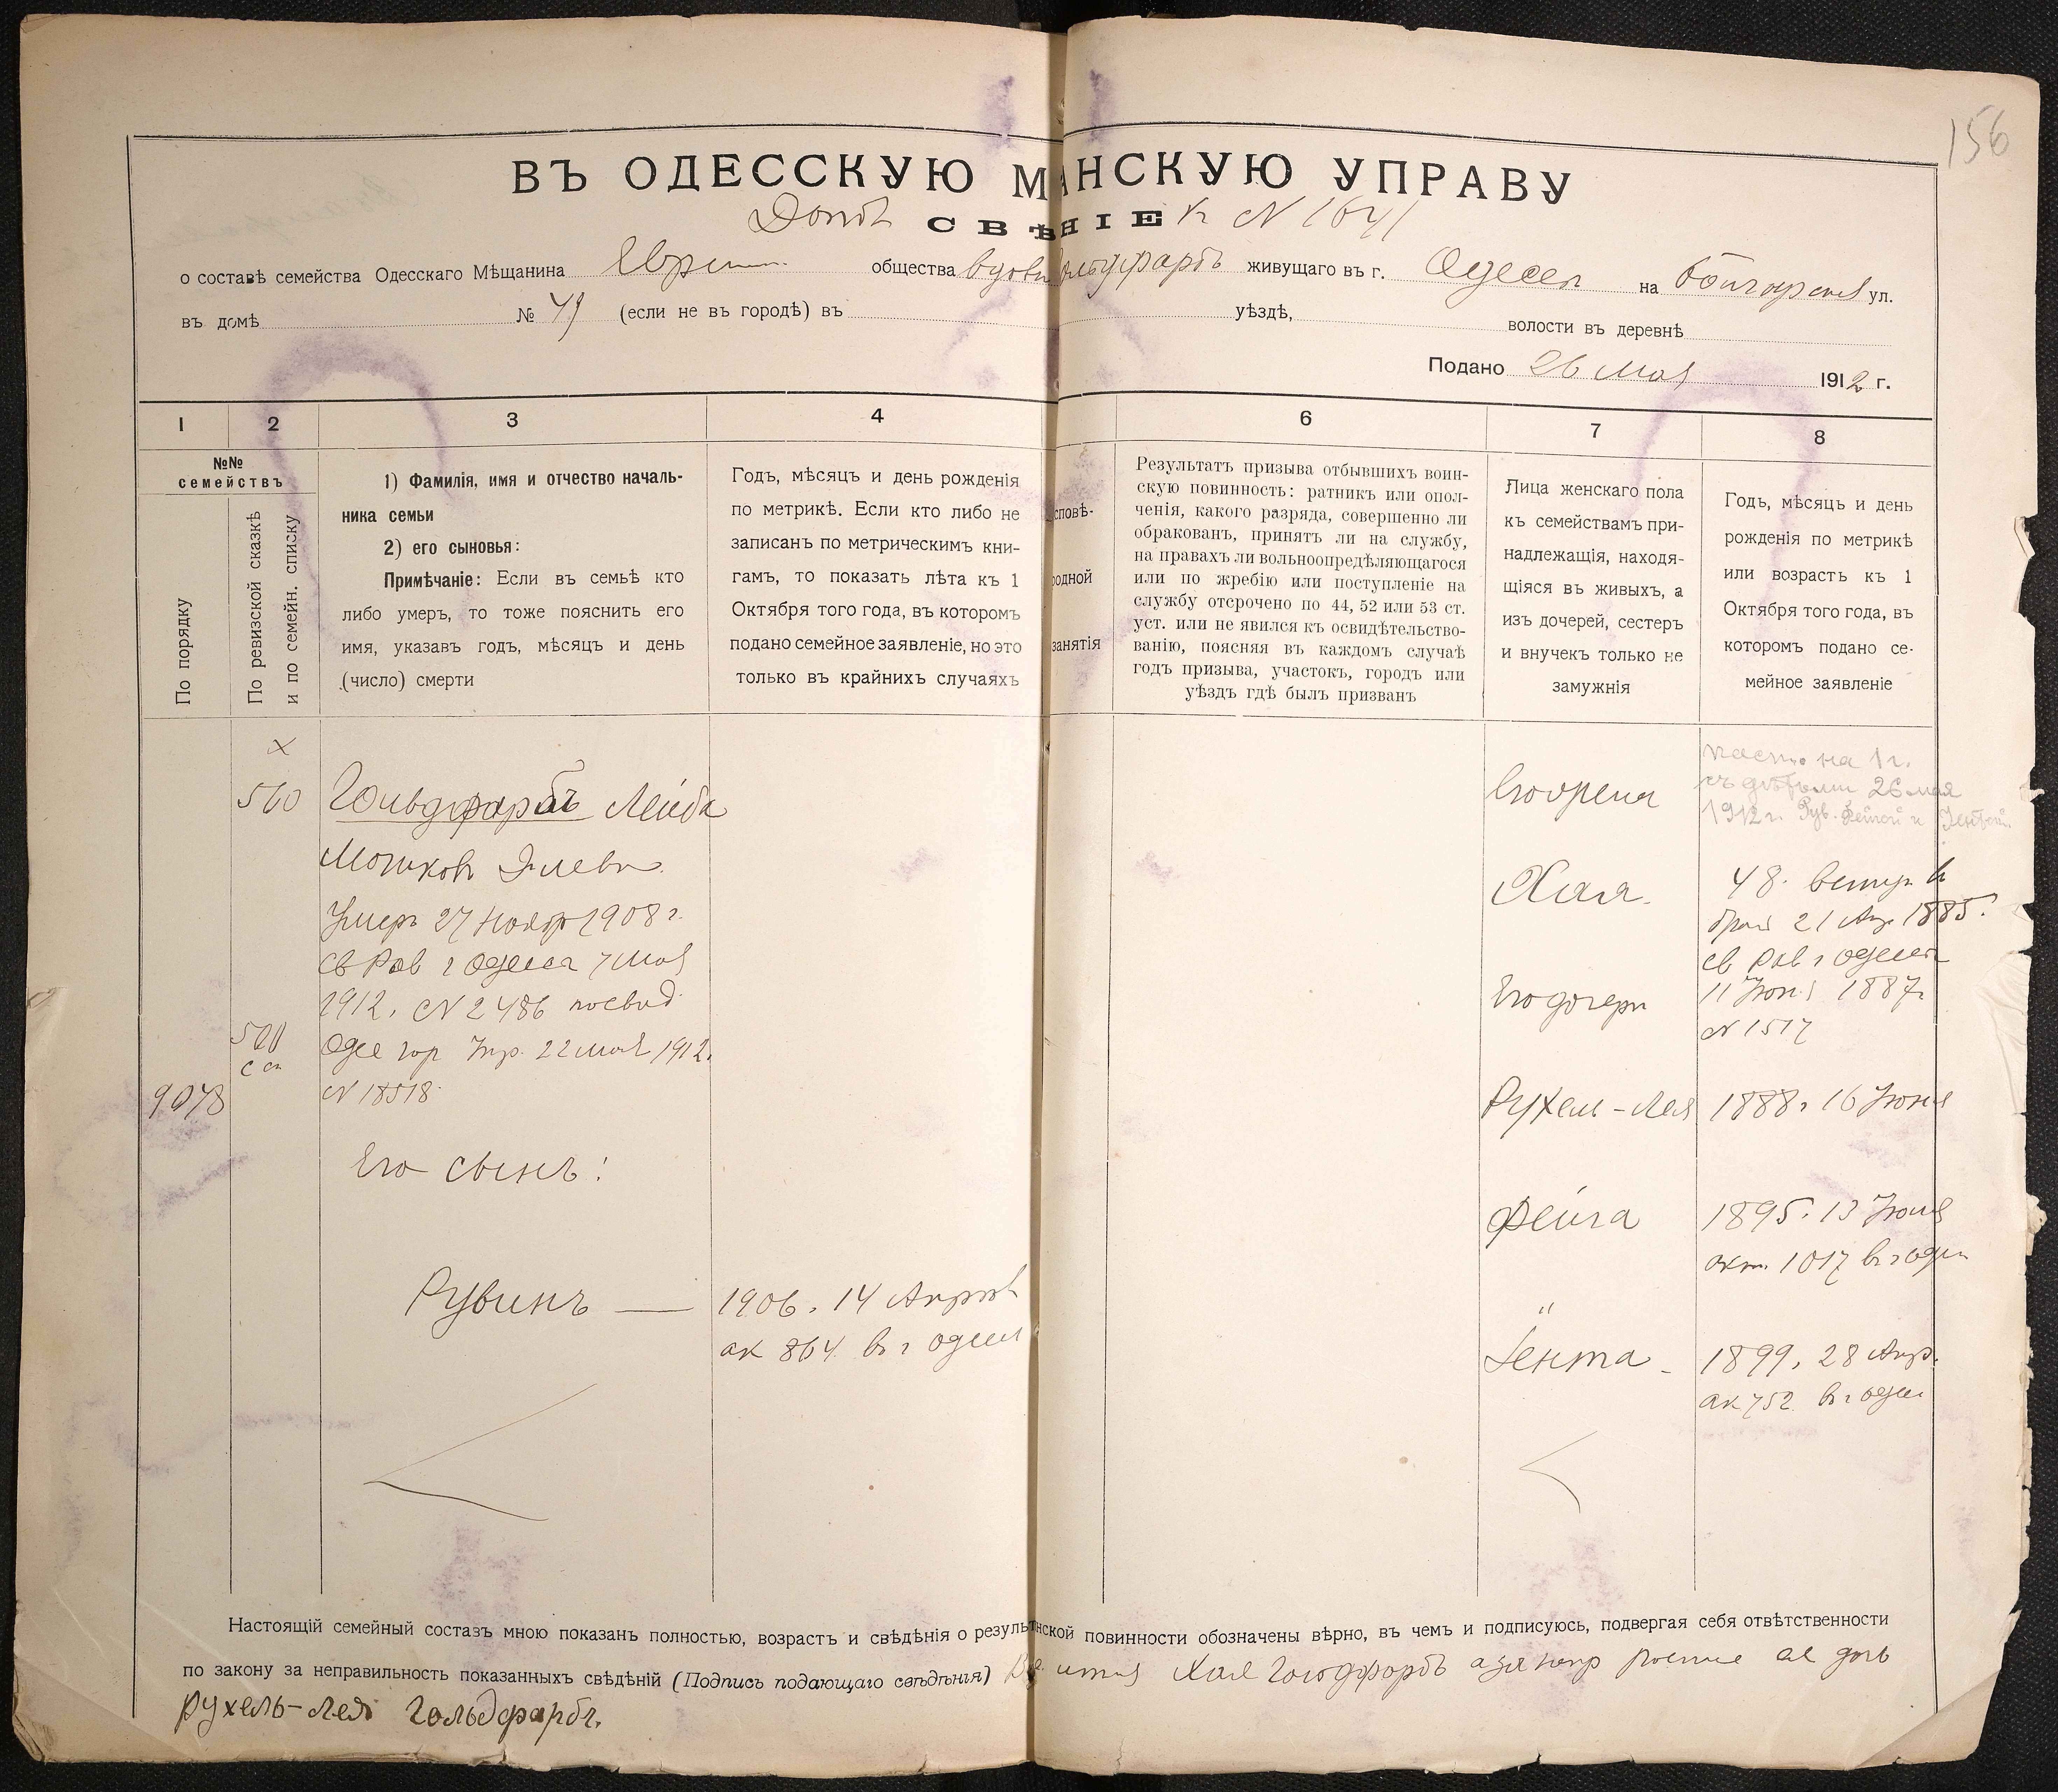 156
ВЪ ОДЕССКУЮ М АНСКУЮ УПРАВУ
СВѢ НІЕ к N 1641
о составѣ семейства Одесскаго Мѣщанина общества живущаго въ г. Одессе на ул.
въ домѣ № 49 (если не въ городѣ) въ уѣздѣ, волости въ деревнѣ
Подано 26 Мая 1912 г.
1 2 3 4 6 7 8
№№ семействъ
По порядку
По ревизской сказкѣ
и по семейн. списку
1) Фамилія, имя и отчество началь-
ника семьи
2) его сыновья:
Примѣчаніе: Если въ семьѣ кто
либо умеръ, то тоже пояснить его
имя, указавъ годъ, мѣсяцъ и день
(число) смерти
Годъ, мѣсяцъ и день рожденія
по метрикѣ. Если кто либо не
записанъ по метрическимъ кни-
гамъ, то показать лѣта къ 1
Октября того года, въ которомъ
подано семейное заявленіе, но это
только въ крайнихъ случаяхъ
сповѣ-
одной
занятія
Результатъ призыва отбывшихъ воин-
скую повинность: ратникъ или опол-
ченія, какого разряда, совершенно ли
обракованъ, принятъ ли на службу,
на правахъ ли вольноопредѣляющагося
или по жребію или поступленіе на
службу отсрочено по 44, 52 или 53 ст.
уст. или не явился къ освидѣтельство-
ванію, поясняя въ каждомъ случаѣ
годъ призыва, участокъ, городъ или
уѣздъ гдѣ былъ призванъ
Лица женскаго пола
къ семействамъ при-
надлежащія, находя-
щіяся въ живыхъ, а
изъ дочерей, сестеръ
и внучекъ только не
замужнія
Годъ, мѣсяцъ и день
рожденія по метрикѣ
или возрастъ къ 1
Октября того года, въ
которомъ подано се-
мейное заявленіе
x
560 Гольдфарбъ Лейба
Мошковъ
Умеръ 27 Ноябр 1908 г.
св Рав г Одесса 7 Мая
1912. N 2486
Одес гор Упр. 22 мая 1912.
N 18518
560
9078
Его сынъ:
Рувинъ — 1906. 14 Апрѣл
ак 864 въ г одесс
на 1 г.
съ дѣтьми 26 мая
1912 г. Рув. Фейгой и Іентой
Хая. 48.
21 Апр 1885.
св Рав г Одессы
Его дочери 11 Іюня 1887.
N 1517
Рухель-Лея 1888 г 16 Іюня
Фейга 1895. 13 Іюля
акт. 1017 въ г одес
Іента - 1899. 28 Апр.
ак 752 въ г одес
Настоящій семейный составъ мною показанъ полностью, возрастъ и свѣдѣнія о резуль нской повинности обозначены вѣрно, въ чемъ и подписуюсь, подвергая себя отвѣтственности
по закону за неправильность показанныхъ свѣдѣній (Подпись подающаго свѣдѣнія) Хая Гольдфарбъ ея дочь
Рухель-Лея Гольдфарбъ.